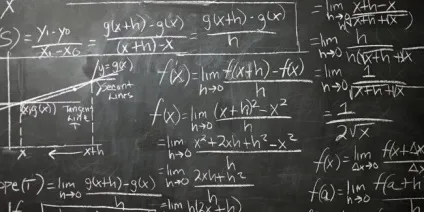 (S) = y₁-y₀ / x₁-x₀ = g(x+h)-g(x) / (x+h)-x = g(x+h)-g(x) / h
y=g(x)
Secant
Lines
(x,g(x))
Tangent
Line
T
x ← x+h
ope(T) = lim h→0 g(x+h)-g(x)
f'(x) = lim h→0 f(x+h)-f(x) / h
f(x) = lim h→0 (x+h)²-x² / h
= lim h→0 x²+2xh+h²-x² / h
= lim h→0 2xh+h² / h
= lim h(2x+h)
= lim h→0 x+h-x / (√x+h+√x)
= lim h→0 h / h(√x+h+√x
= lim h→0 1 / √x+h+√x
= 1 / 2√x
f(x) = lim Δx→0 f(x+Δx
f(a) = lim h→0 f(a+h